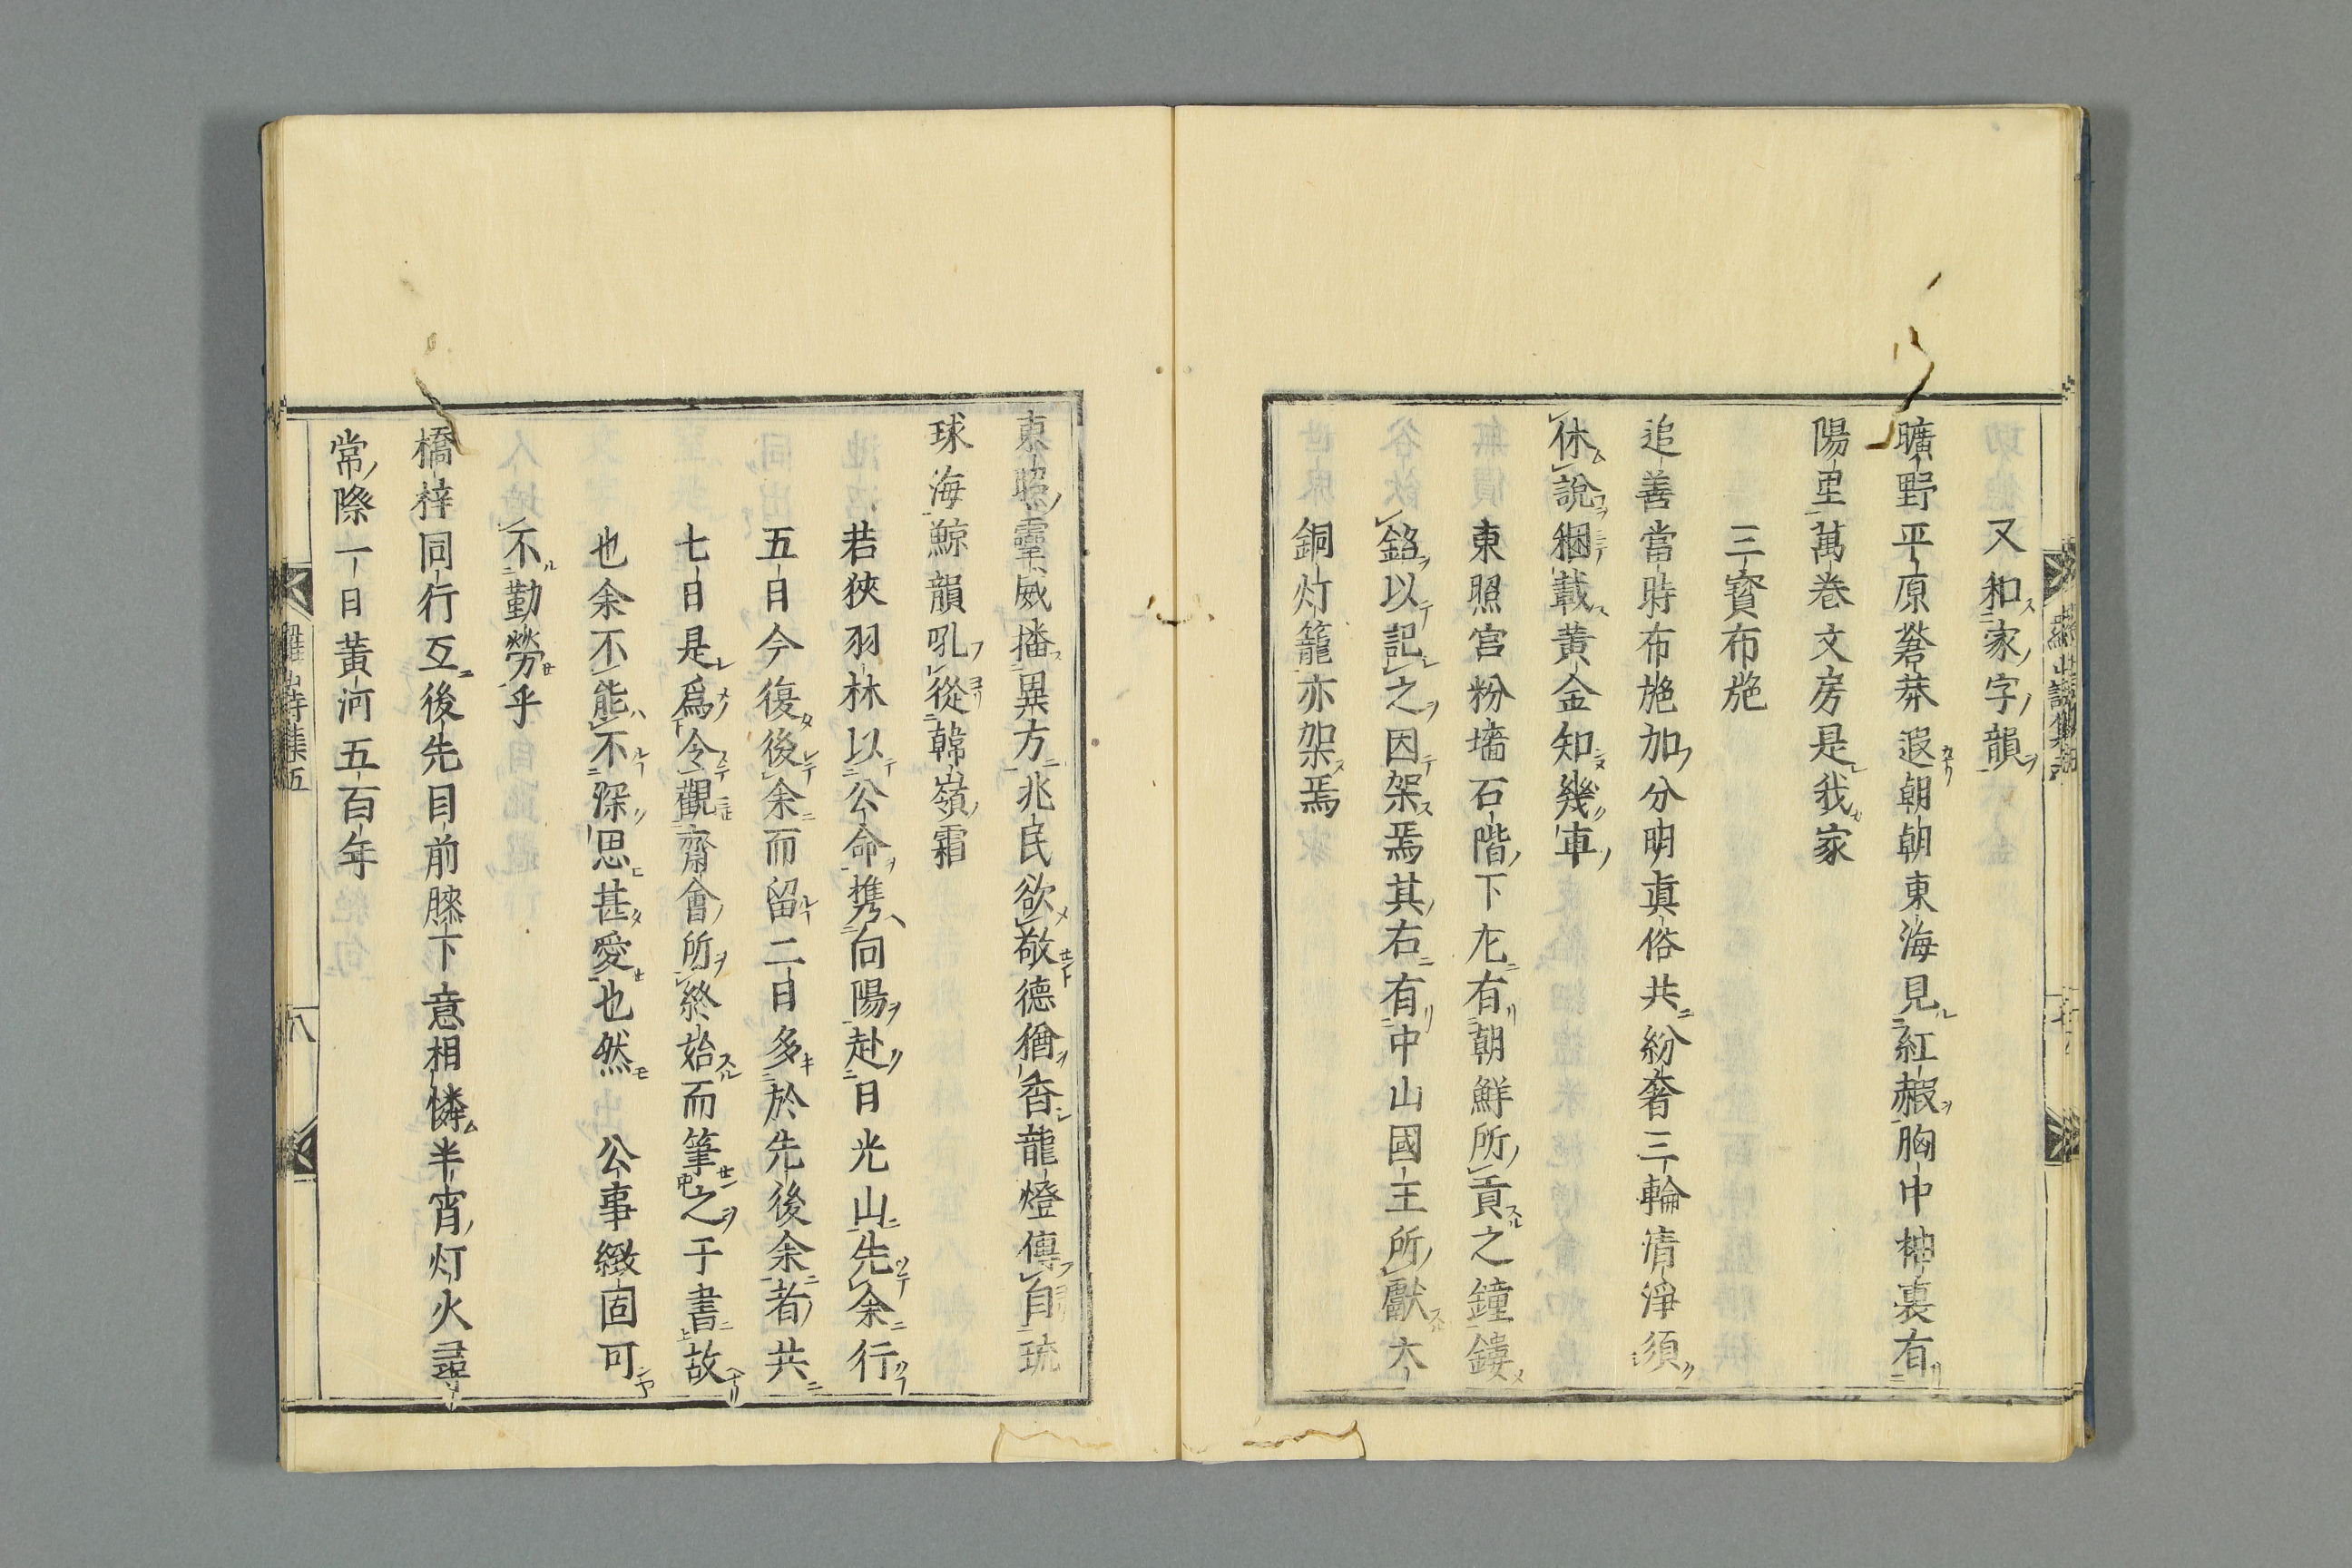 又和家字韻
曠野平原蒼莽遐朝朝東海見紅赮胸中柚裏有
陽里萬巻文房是我家
三寳布施
追善當時布施加分明眞俗共紛奢三輪清淨須
休說稇載黄金知幾車
東照宮粉墻石階下左有朝鮮所貢之鐘鏤
銘以記之因架焉其右有中山國王所獻大
銅灯籠亦架焉
東照靈威播異方兆民欲敬德猶香龍燈傳自琉
球海鯨韻吼從韓嶺霜
若狹羽林以公命携向陽赴日光山先余行
五日今復後余而留二日多於先後余者共
七日是爲令觀齋會所終始而筆之于書故
也余不能不深思甚愛也然 公事緻固可
不勤勞乎
橋梓同行互後先目前膝下意相憐半宵灯火尋
常際一日黄河五百年
羅山詩集五
八